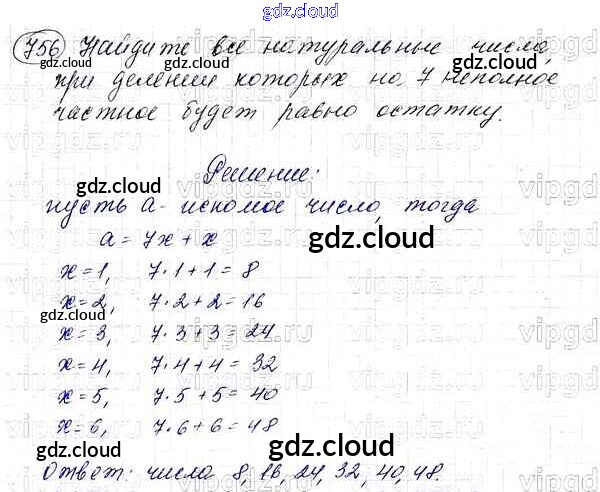 gdz.cloud
756 Найдите все натуральные числа,
gdz.cloud gdz.cloud
при делении которых на 7 неполное
частное будет равно остатку.
gdz.cloud gdz.cloud
vipgdz.ru vipgd
Решение:
gdz.cloud
пусть а - искомое число, тогда
а = 7х + х gdz.cloud
vipgdz.ru vipgd
х = 1, 7·1+1 = 8
х = 2, 7·2+2 = 16
gdz.cloud gdz.cloud
х = 3, 7·3+3 = 24
vipgdz.ru vipgd
х = 4, 7·4+4 = 32
х = 5, 7·5+5 = 40
vipgdz.ru vipgd
х = 6, 7·6+6 = 48
gdz.cloud gdz.cloud
Ответ: числа 8, 16, 24, 32, 40, 48.
gdz.cloud